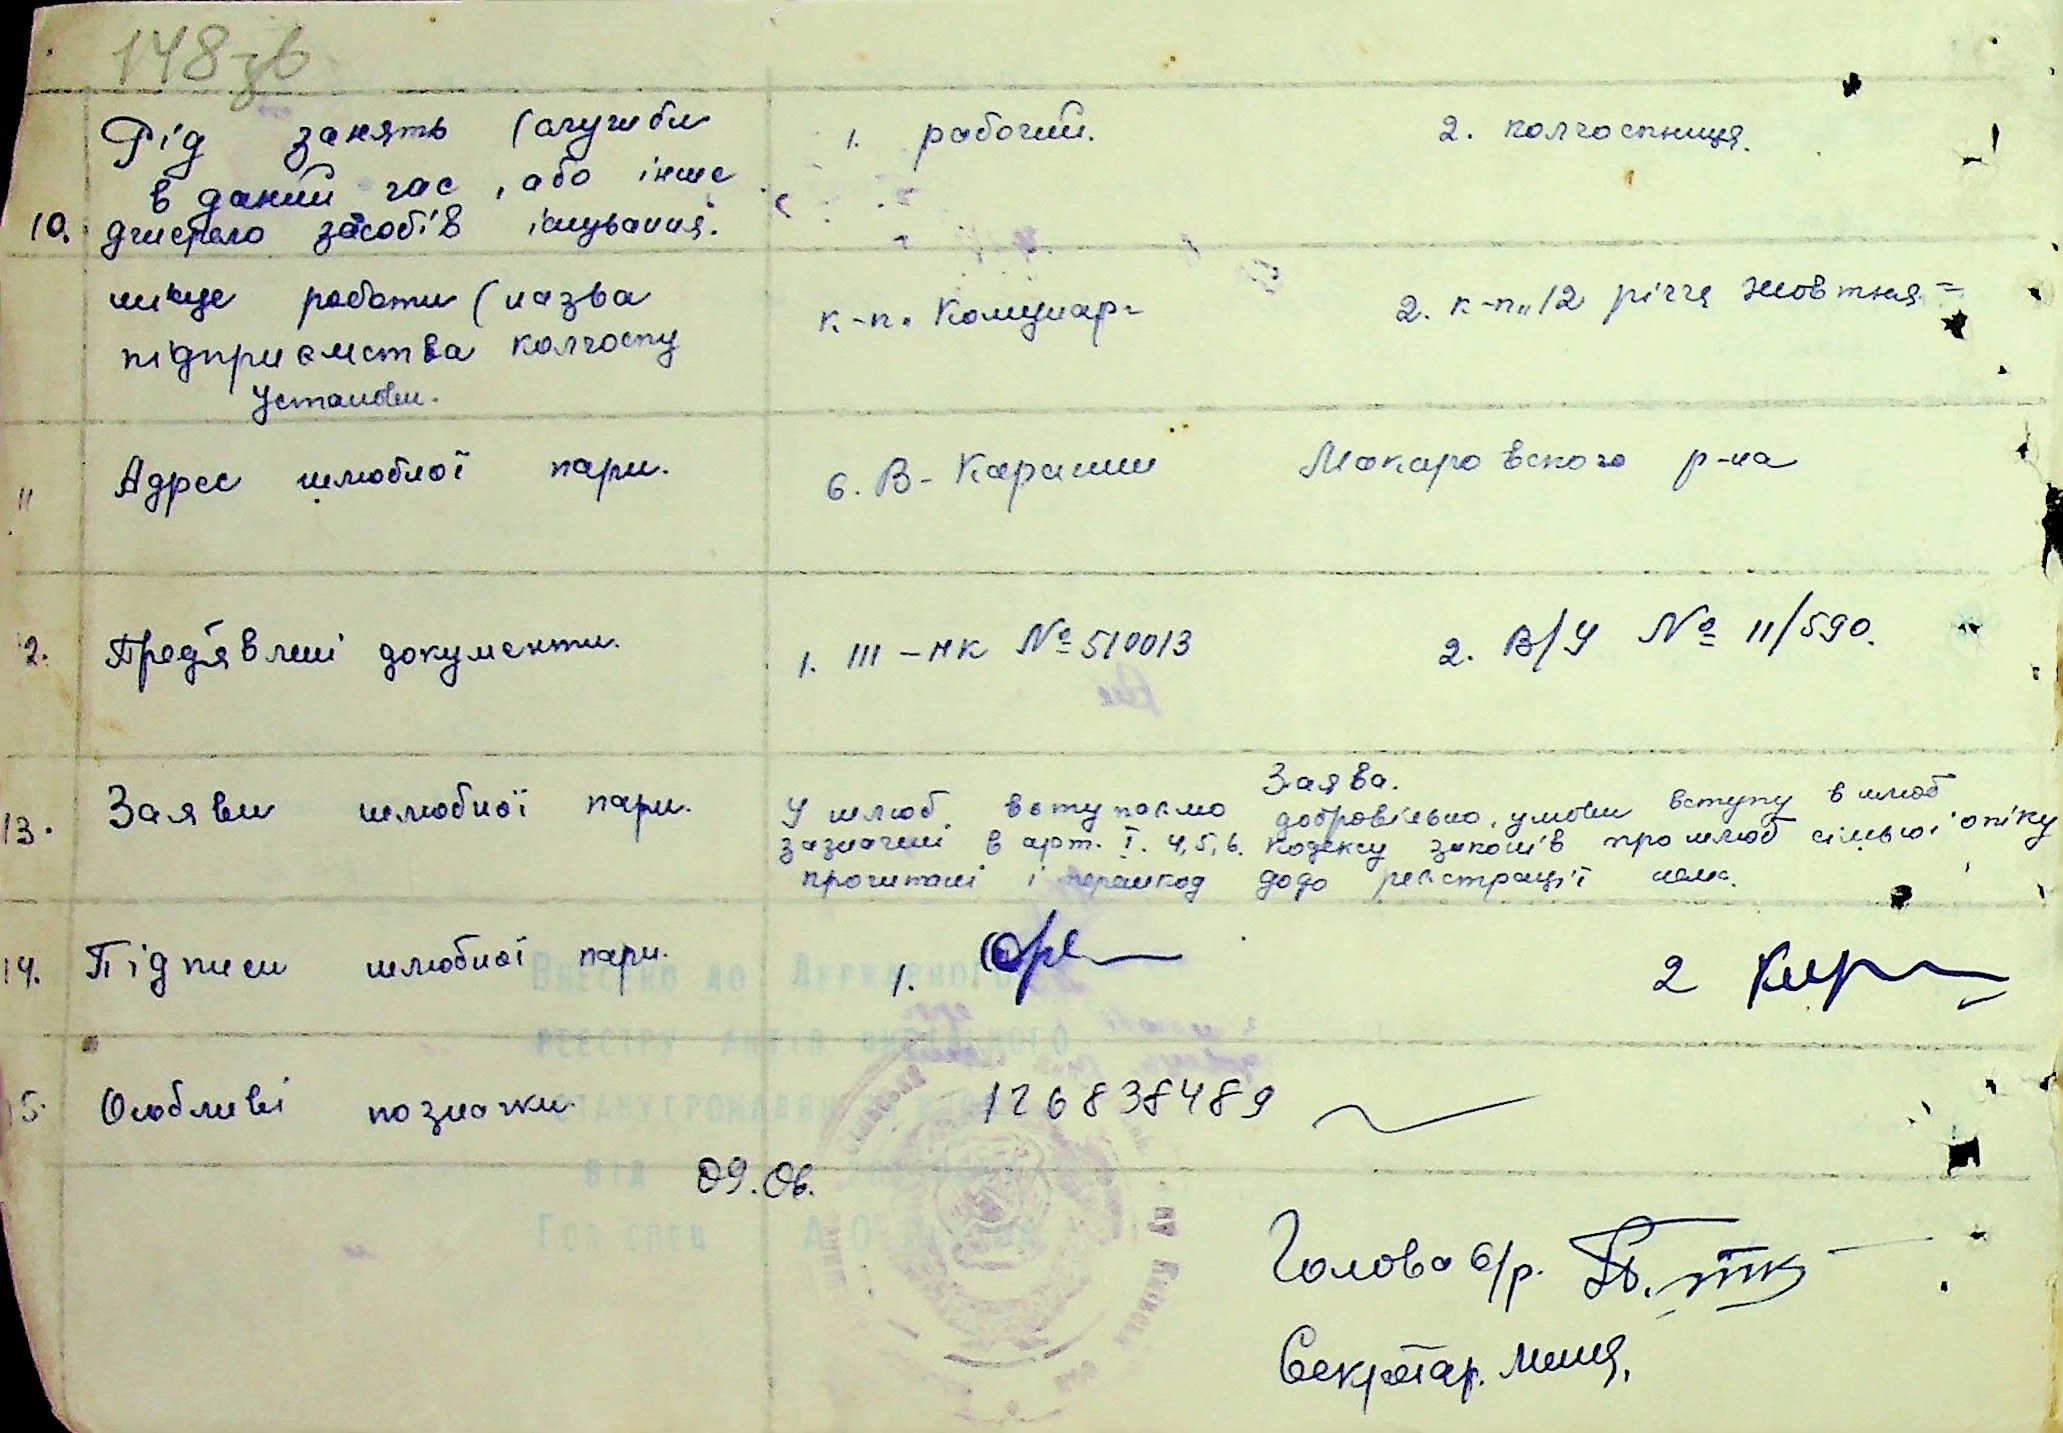 148зв
Рід занять (служби 1. рабочий. 2. колгоспниця.
в даний час, або інше
10. джерело засобів існування.
місце роботи (назва к-п. Комунар- 2. к-п „12 річчя Жовтня-
підприємства колгоспу
установи.
11 Адрес шлюбної пари. с. В-Карашин Макаровского р-на
12. Пред'явлені документи. 1. III-НК № 510013 2. В/У № 11/590.
Заява.
13. Заяви шлюбної пари. У шлюб вступаємо добровільно, умови вступу в шлюб
зазначені в арт. I. 4,5,6. Кодексу законів про шлюб сімью і опіку
прочитані і перешкод додо реєстрації нема.
14. Підписи шлюбної пари. 1. 2
Внесено до Державного
реєстру актів цивільного
15. Особливі позначки. 126838489
стану громадян
від 09.06.
Голова с/р.
Секретар.